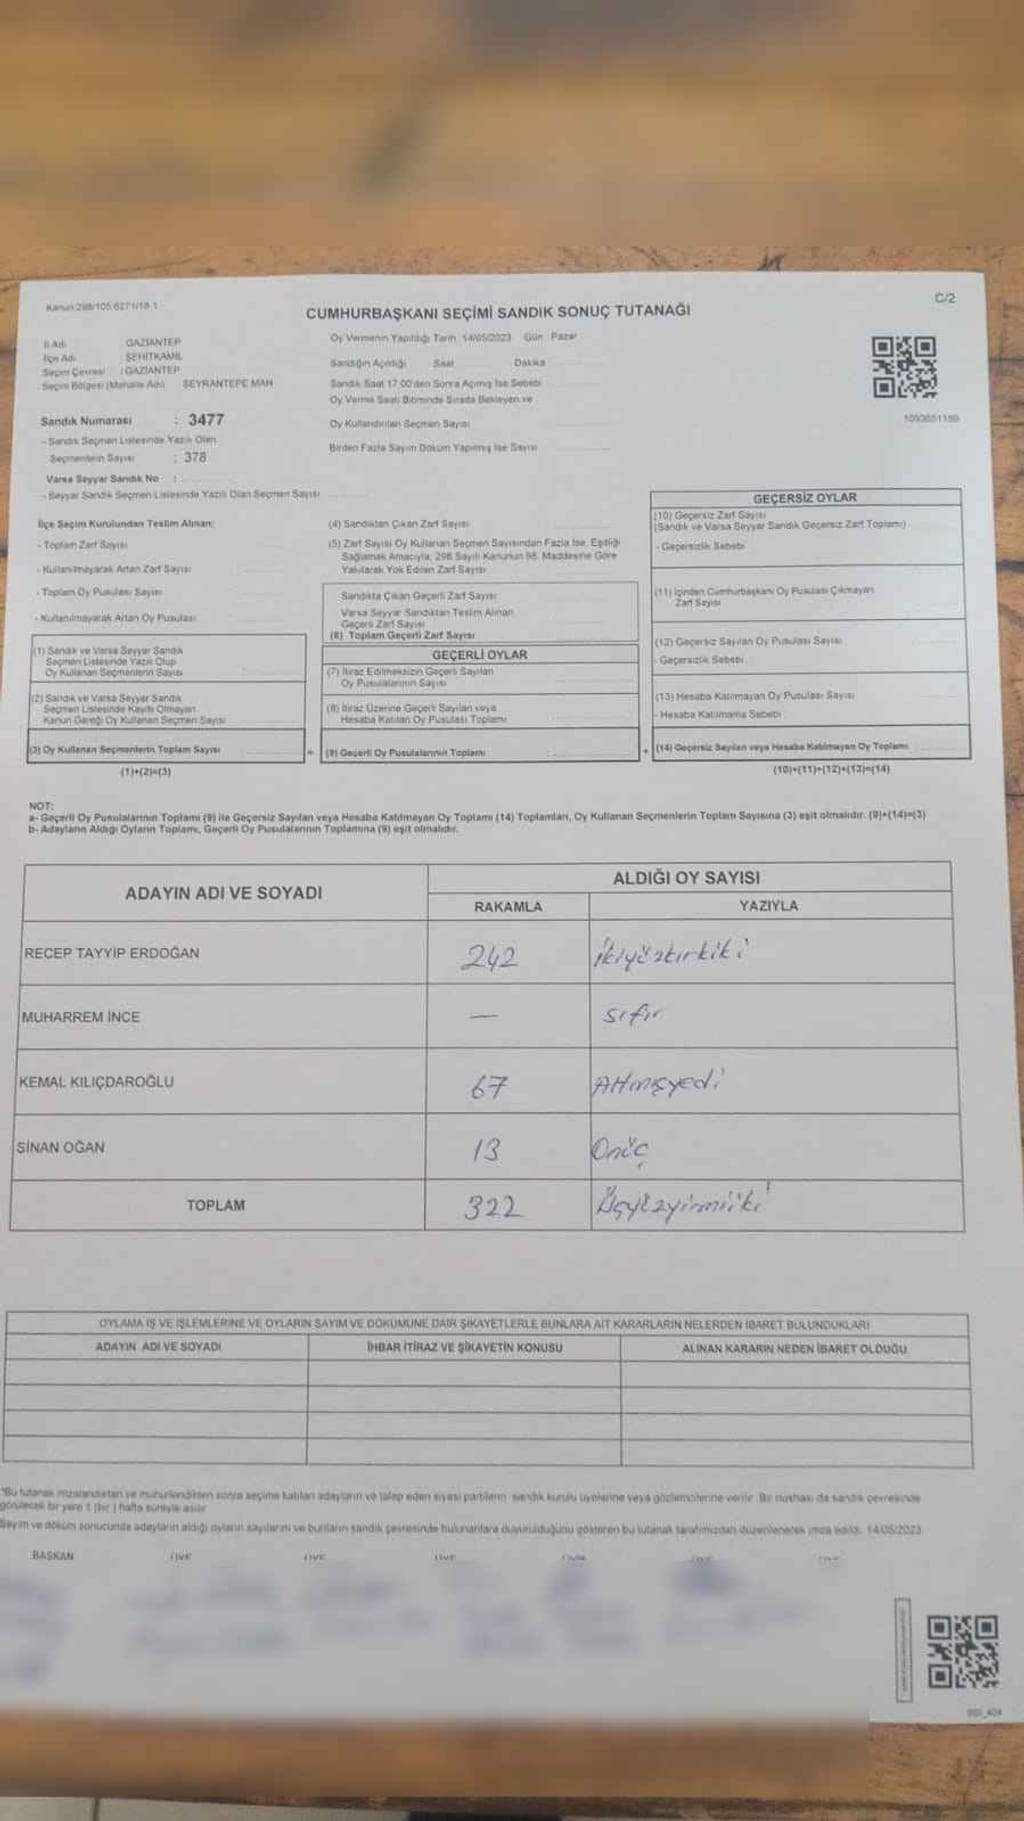 Kanun 298/105,6271/18-1
C/2
CUMHURBAŞKANI SEÇİMİ SANDIK SONUÇ TUTANAĞI
İl Adı GAZİANTEP
İlçe Adı ŞEHİTKAMİL
Seçim Çevresi : GAZİANTEP
Seçim Bölgesi (Mahalle Adı) SEYRANTEPE MAH
Sandık Numarası : 3477
- Sandık Seçmen Listesinde Yazılı Olan
Seçmenlerin Sayısı : 378
Varsa Seyyar Sandık No :
- Seyyar Sandık Seçmen Listesinde Yazılı Olan Seçmen Sayısı
Oy Vermenin Yapıldığı Tarih 14/05/2023 Gün Pazar
Sandığın Açıldığı Saat Dakika
Sandık Saat 17:00'den Sonra Açılmış İse Sebebi
Oy Verme Saati Bitiminde Sırada Bekleyen ve
Oy Kullandırılan Seçmen Sayısı
Birden Fazla Sayım Döküm Yapılmış İse Sayısı
İlçe Seçim Kurulundan Teslim Alınan:
- Toplam Zarf Sayısı
- Kullanılmayarak Artan Zarf Sayısı
- Toplam Oy Pusulası Sayısı
- Kullanılmayarak Artan Oy Pusulası
(1) Sandık ve Varsa Seyyar Sandık
Seçmen Listesinde Yazılı Olup
Oy Kullanan Seçmenlerin Sayısı
(2) Sandık ve Varsa Seyyar Sandık
Seçmen Listesinde Kayıtlı Olmayan
Kanun Gereği Oy Kullanan Seçmen Sayısı
(3) Oy Kullanan Seçmenlerin Toplam Sayısı
(1)+(2)=(3)
(4) Sandıktan Çıkan Zarf Sayısı
(5) Zarf Sayısı Oy Kullanan Seçmen Sayısından Fazla İse, Eşitliği
Sağlamak Amacıyla, 298 Sayılı Kanunun 98. Maddesine Göre
Yakılarak Yok Edilen Zarf Sayısı
Sandıkta Çıkan Geçerli Zarf Sayısı
Varsa Seyyar Sandıktan Teslim Alınan
Geçerli Zarf Sayısı
(6) Toplam Geçerli Zarf Sayısı
GEÇERLİ OYLAR
(7) İtiraz Edilmeksizin Geçerli Sayılan
Oy Pusulalarının Sayısı
(8) İtiraz Üzerine Geçerli Sayılan veya
Hesaba Katılan Oy Pusulası Toplamı
= (9) Geçerli Oy Pusulalarının Toplamı
GEÇERSİZ OYLAR
(10) Geçersiz Zarf Sayısı
(Sandık ve Varsa Seyyar Sandık Geçersiz Zarf Toplamı)
- Geçersizlik Sebebi
(11) İçinden Cumhurbaşkanı Oy Pusulası Çıkmayan
Zarf Sayısı
(12) Geçersiz Sayılan Oy Pusulası Sayısı
- Geçersizlik Sebebi
(13) Hesaba Katılmayan Oy Pusulası Sayısı
- Hesaba Katılmama Sebebi
+ (14) Geçersiz Sayılan veya Hesaba Katılmayan Oy Toplamı
(10)+(11)+(12)+(13)=(14)
NOT:
a- Geçerli Oy Pusulalarının Toplamı (9) ile Geçersiz Sayılan veya Hesaba Katılmayan Oy Toplamı (14) Toplamları, Oy Kullanan Seçmenlerin Toplam Sayısına (3) eşit olmalıdır. (9)+(14)=(3)
b- Adayların Aldığı Oyların Toplamı, Geçerli Oy Pusulalarının Toplamına (9) eşit olmalıdır.
ADAYIN ADI VE SOYADI
ALDIĞI OY SAYISI
RAKAMLA YAZIYLA
RECEP TAYYİP ERDOĞAN 242 İkiyüzkırkiki
MUHARREM İNCE — sıfır
KEMAL KILIÇDAROĞLU 67 Altmışyedi
SİNAN OĞAN 13 Onüç
TOPLAM 322 Üçyüzyirmiiki
OYLAMA İŞ VE İŞLEMLERİNE VE OYLARIN SAYIM VE DÖKÜMÜNE DAİR ŞİKAYETLERLE BUNLARA AİT KARARLARIN NELERDEN İBARET BULUNDUKLARI
ADAYIN ADI VE SOYADI İHBAR İTİRAZ VE ŞİKAYETİN KONUSU ALINAN KARARIN NEDEN İBARET OLDUĞU
"Bu tutanak imzalandıktan ve mühürlendikten sonra seçime katılan adayların ve talep eden siyasi partilerin sandık kurulu üyelerine veya gözlemcilerine verilir. Bir nüshası da sandık çevresinde
görülecek bir yere 1 (bir) hafta süreyle asılır
Sayım ve döküm sonucunda adayların aldığı oyların sayılarını ve bunların sandık çevresinde bulunanlara duyurulduğunu gösteren bu tutanak tarafımızdan düzenlenerek imza edildi. 14/05/2023
BAŞKAN ÜYE ÜYE ÜYE